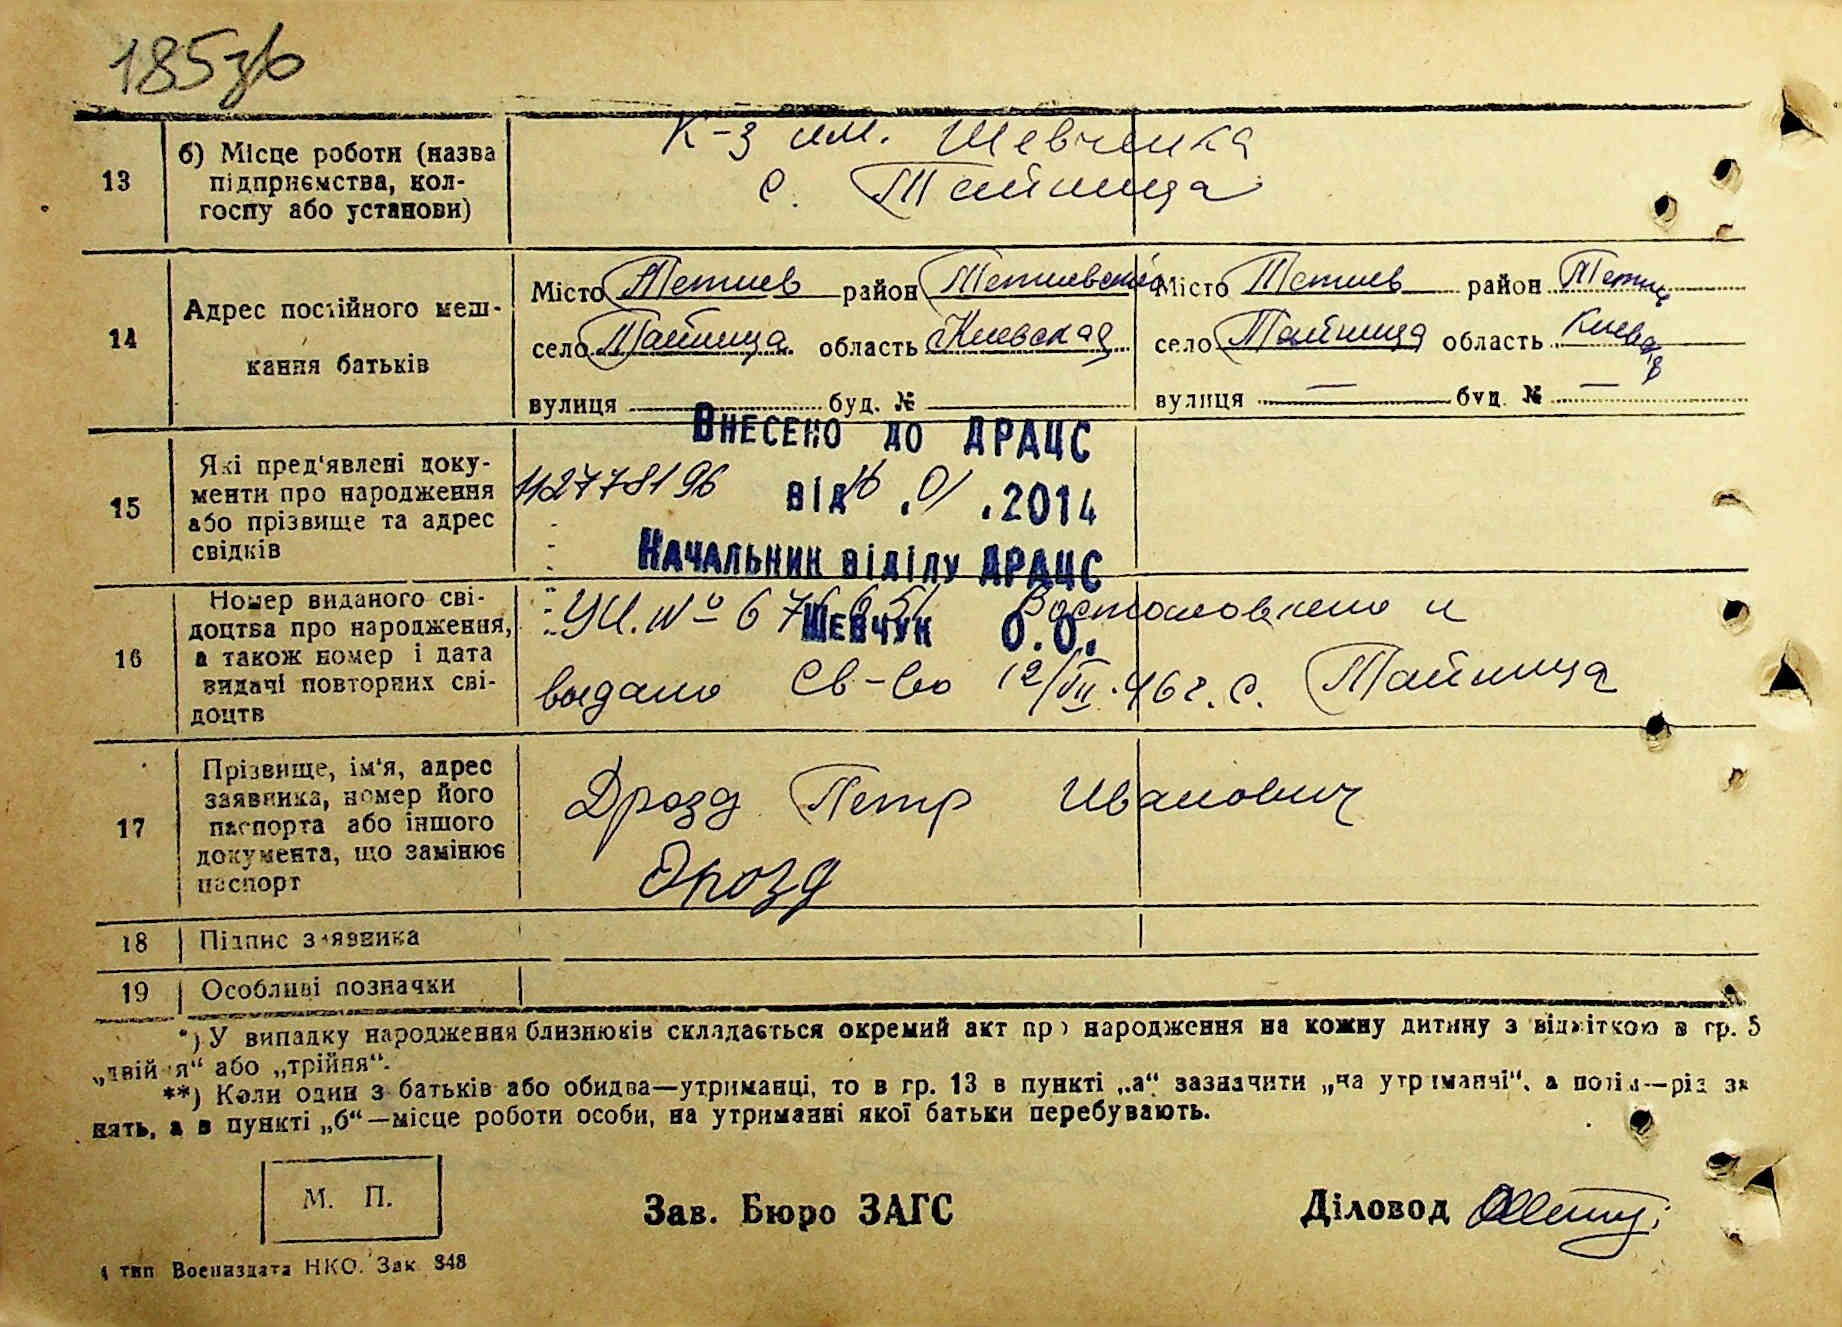 185зв
13
б) Місце роботи (назва
підприємства, кол-
госпу або установи)
К-з им. Шевченка
с. Тайница
14
Адрес постійного меш-
кання батьків
Місто Тетиев район Тетиевский
село Тайница область Киевская
вулиця буд. №
Місто Тетиев район Тетиев
село Тайница область Киевская
вулиця — буд. № —
15
Які пред'явлені доку-
менти про народження
або прізвище та адрес
свідків
Внесено до ДРАЦС
112778196 від 16.01.2014
Начальник відділу ДРАЦС
Шевчук О.О.
16
Номер виданого сві-
доцтва про народження,
а також номер і дата
видачі повторних сві-
доцтв
УИ. № Востановлено и
выдано Св-во 12/VII.46 г. с. Тайница
17
Прізвище, ім'я, адрес
заявника, номер його
паспорта або іншого
документа, що замінює
паспорт
Дрозд Петр Иванович
Дрозд
18
Підпис заявника
19
Особливі позначки
*) У випадку народження близнюків складається окремий акт про народження на кожну дитину з відміткою в гр. 5
„двійня“ або „трійня“.
**) Коли один з батьків або обидва—утриманці, то в гр. 13 в пункті „а“ зазначити „на утриманні“, а потім—рід за
нять, а в пункті „б“—місце роботи особи, на утриманні якої батьки перебувають.
М. П.
Зав. Бюро ЗАГС
Діловод
4 тип Воениздата НКО. Зак 848